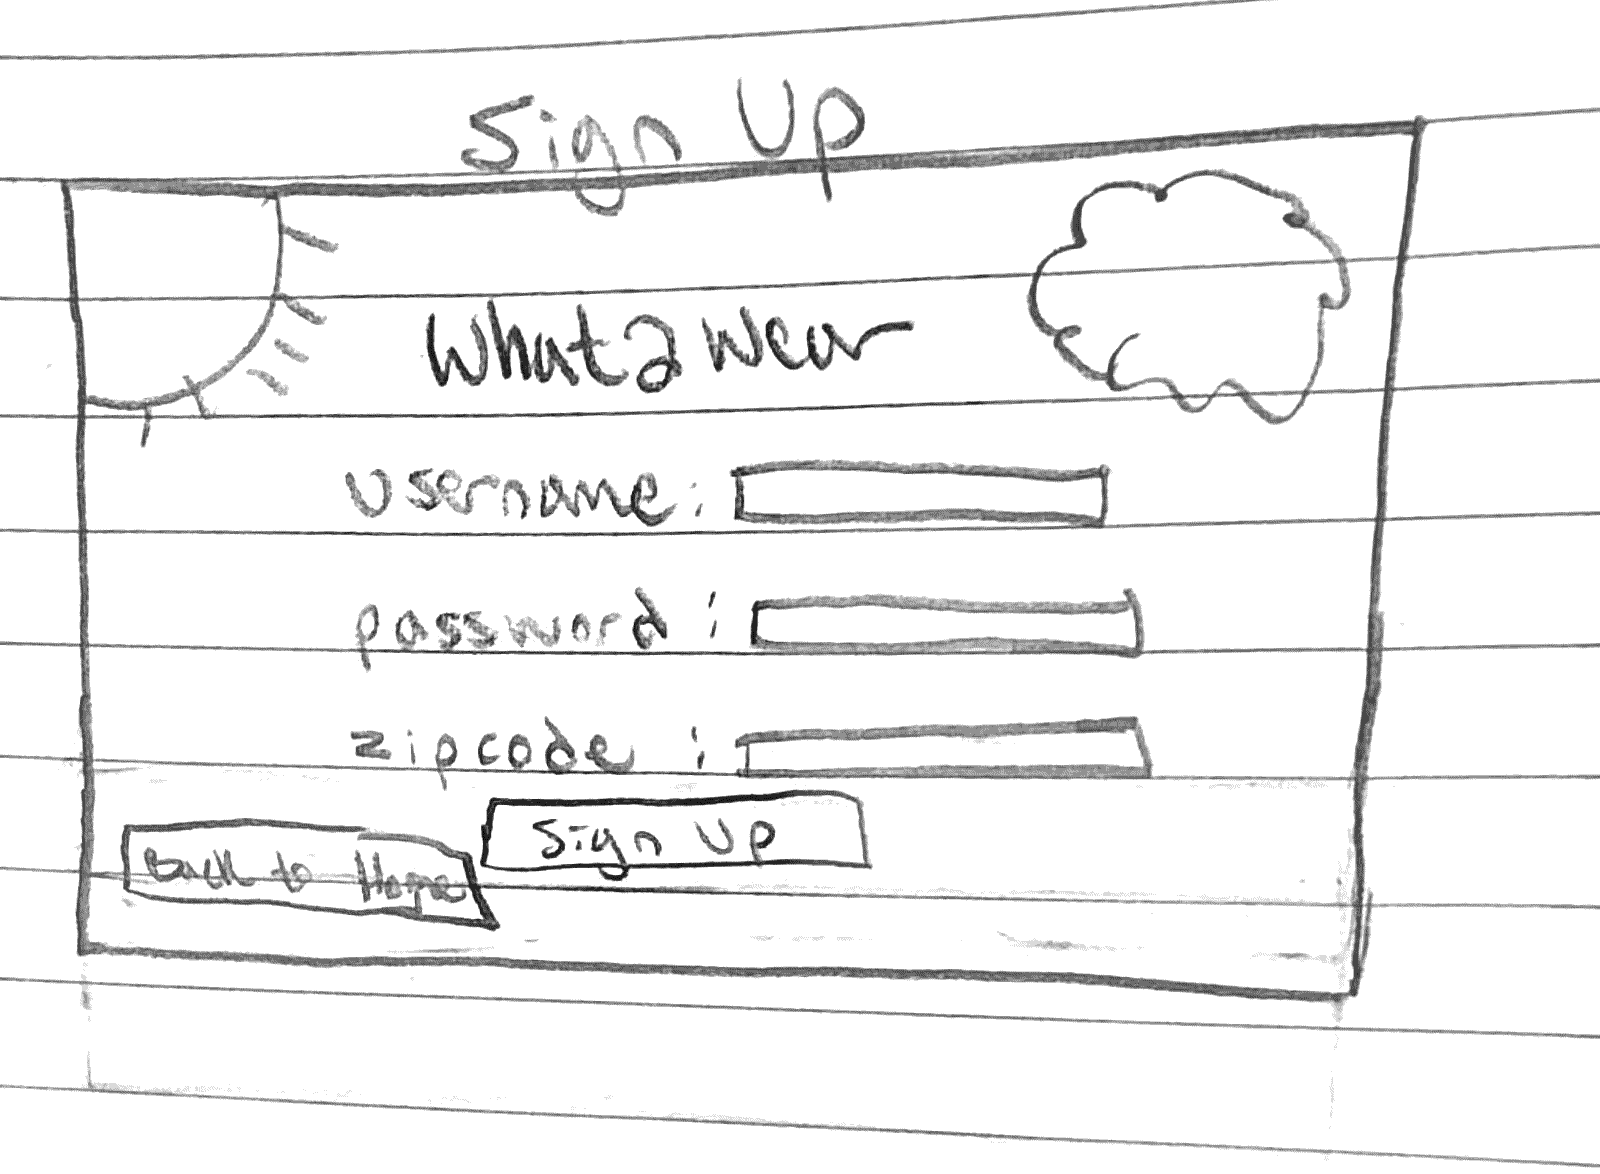 Sign Up
What2Wear
username:
password:
zipcode:
Sign Up
Back to Home